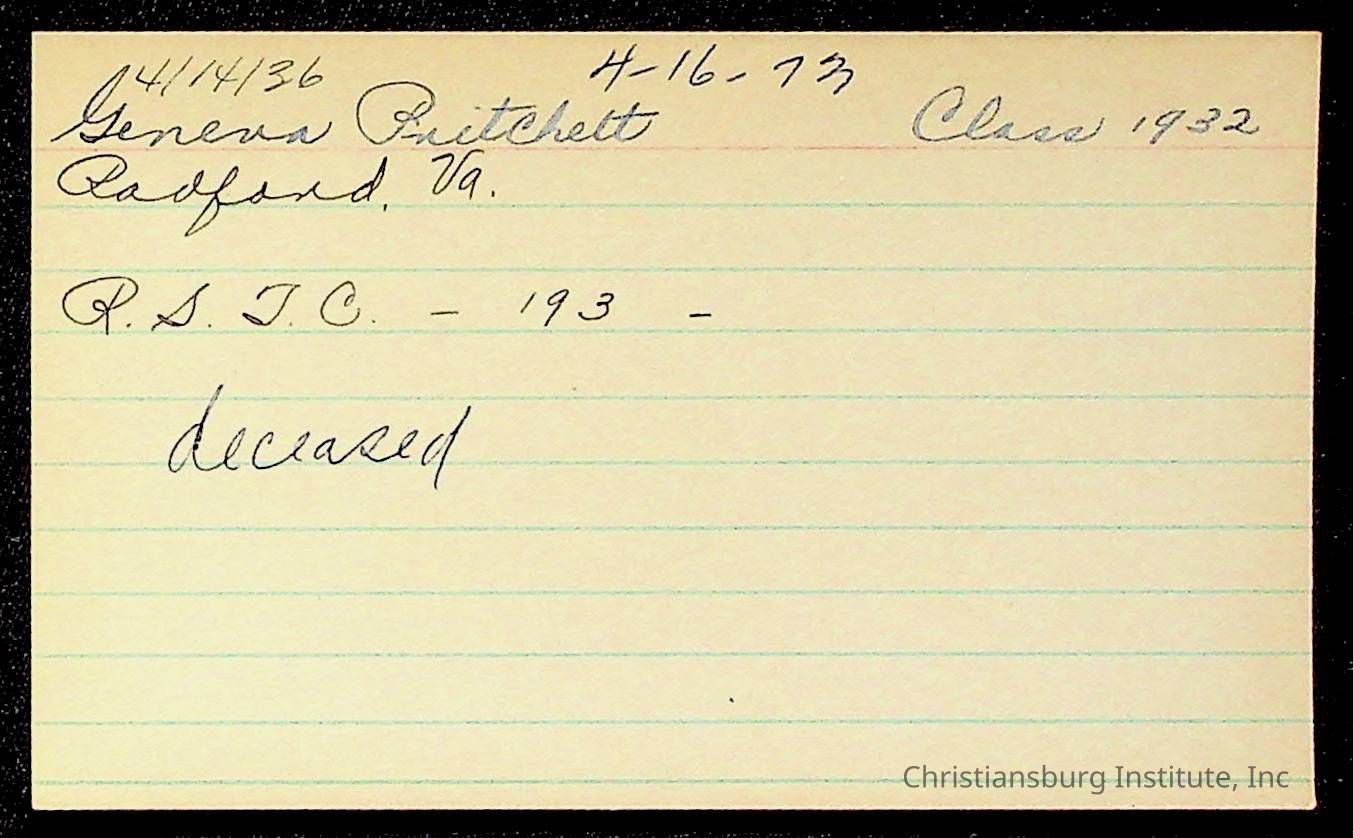 4/14/36 4-16-73
Geneva Pritchett Class 1932
Radford, Va.
R. S. T. C. - 193 -
deceased
Christiansburg Institute, Inc